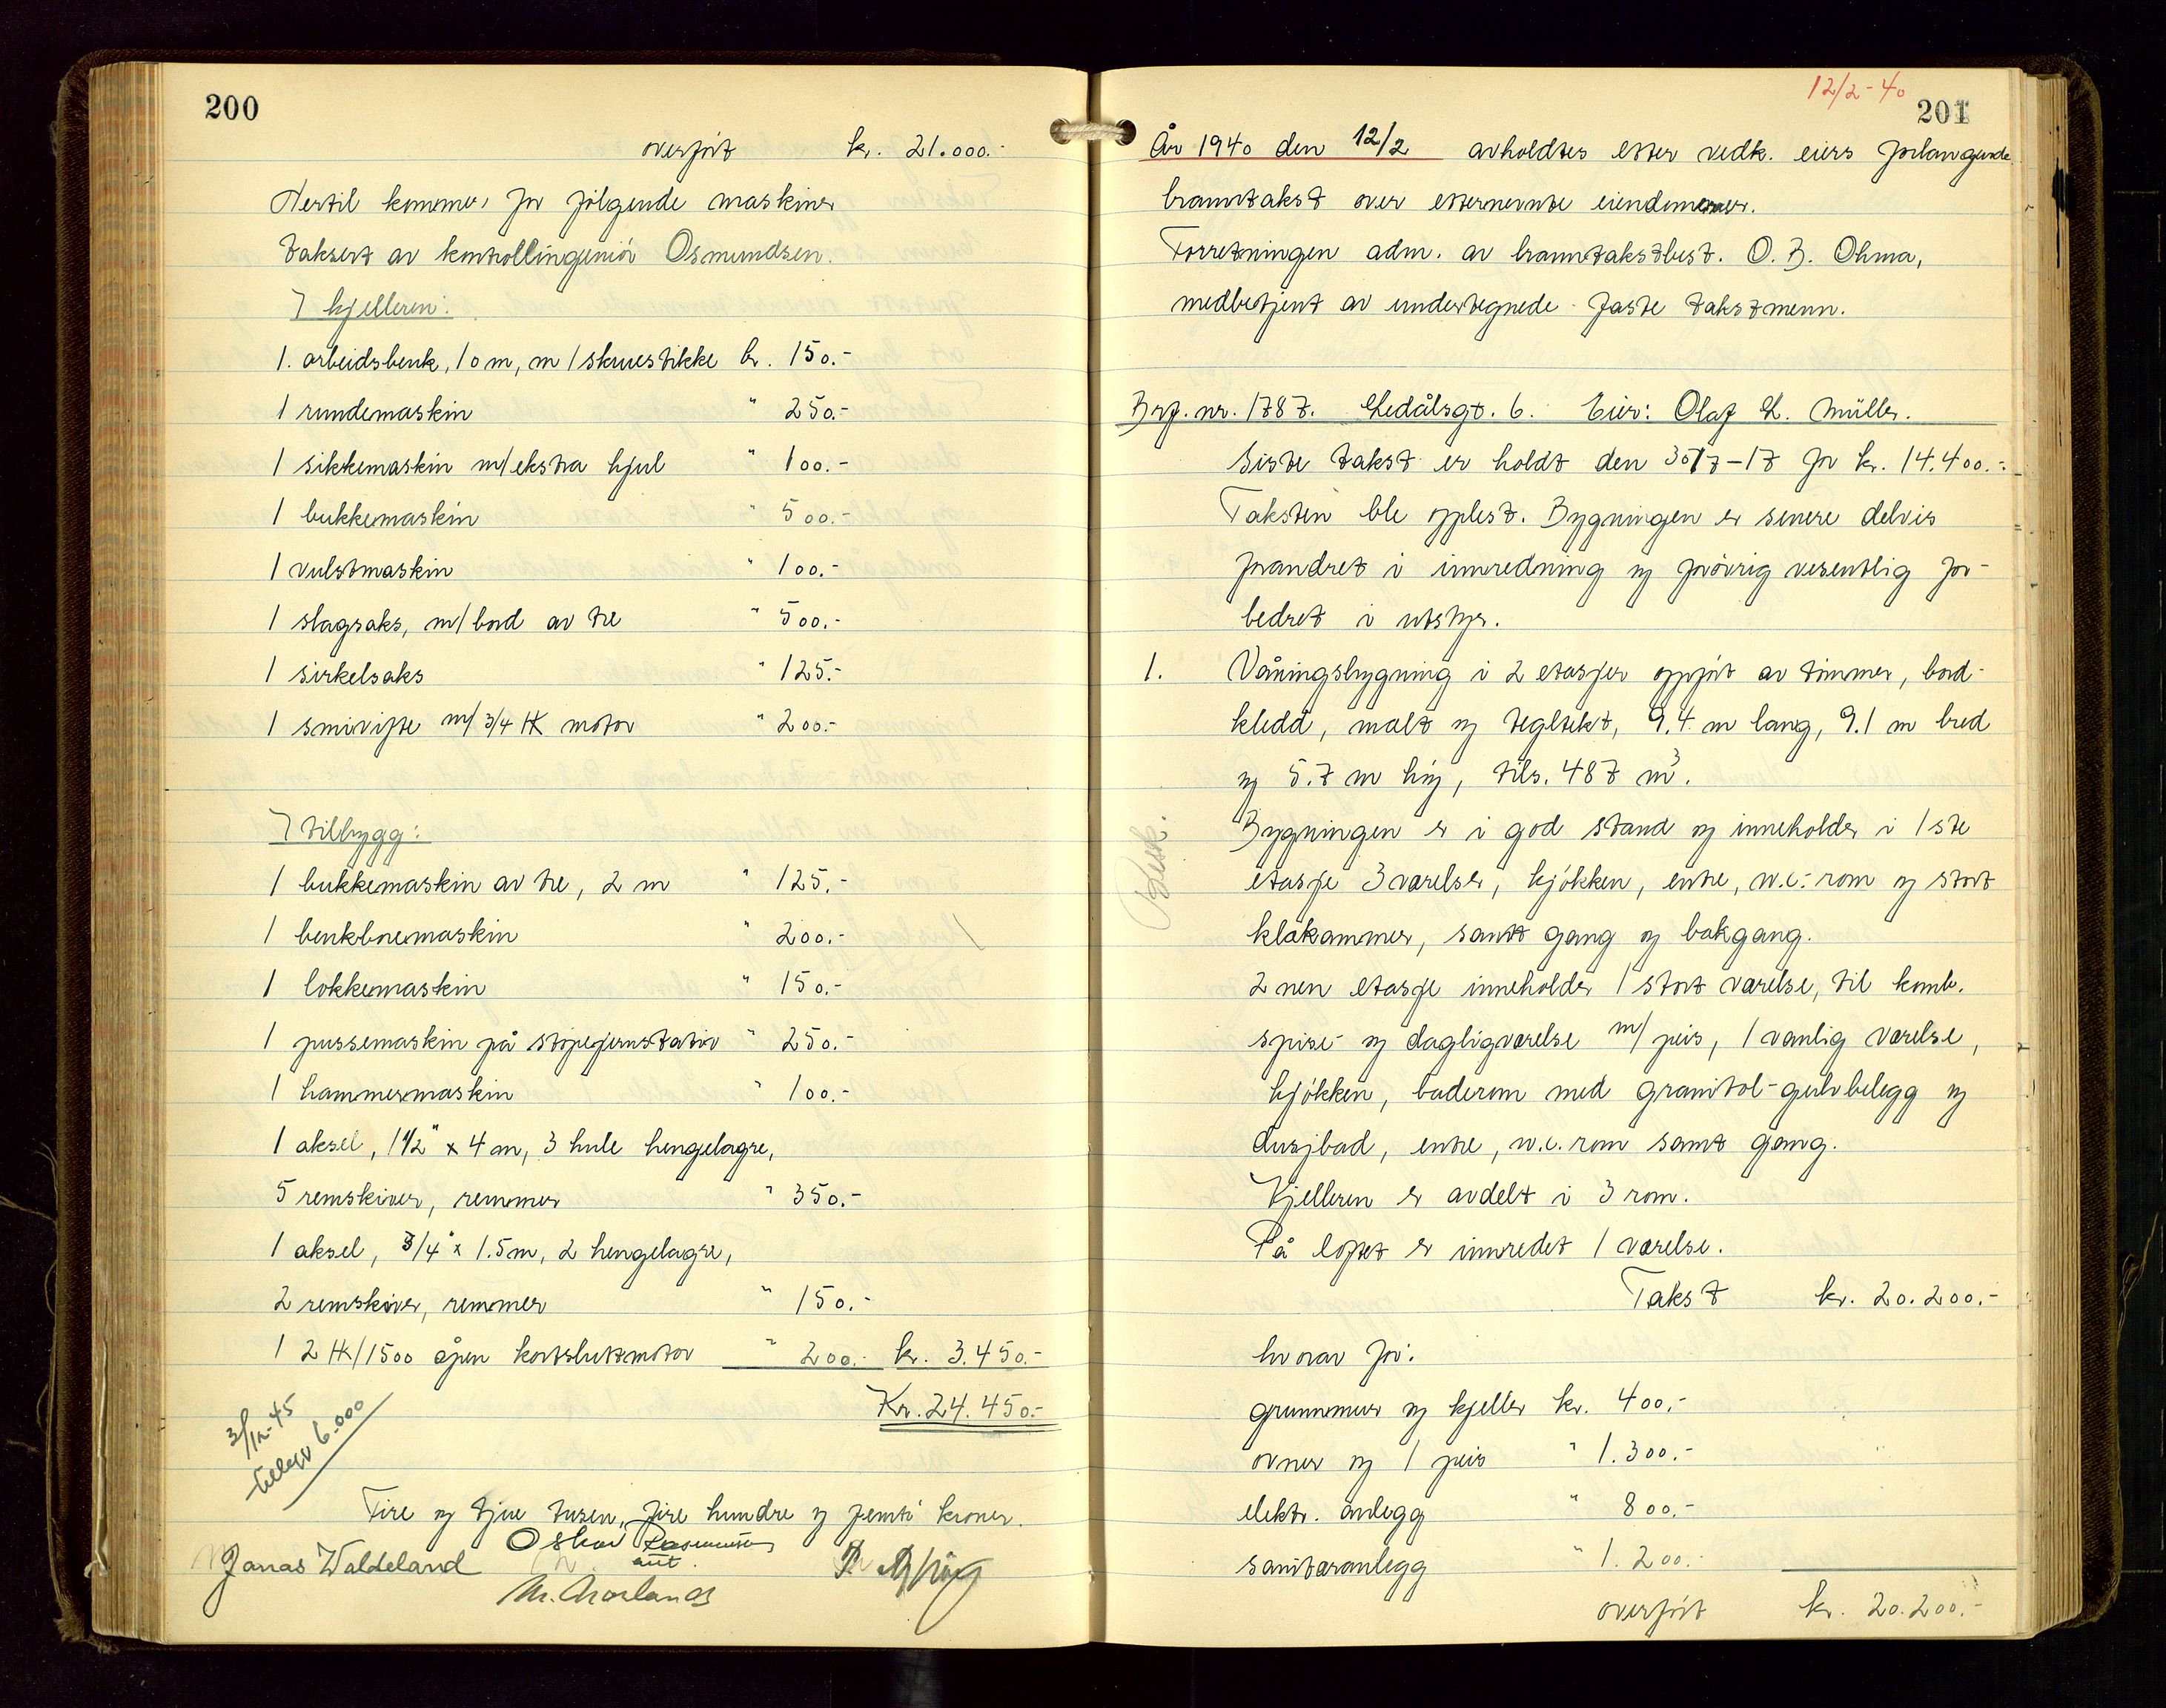 200
overført kr. 21.000.-
Hertil kommer for følgende maskiner
taksert av kontrollingeniør Osmundsen.
I kjelleren:
1. arbeidsbenk, 10 m, m/skruestikke kr. 150.-
1 rundemaskin " 250.-
1 sikkemaskin m/ekstra hjul " 100.-
1 bukkemaskin " 500.-
1 vulstmaskin " 100.-
1 slagsaks, m/bord av tre " 500.-
1 sirkelsaks " 125.-
1 smivifte m/ 3/4 HK motor " 200.-
I tilbygg:
1 bukkemaskin av tre, 2 m " 125.-
1 benkboremaskin " 200.-
1 lokkemaskin " 150.-
1 pussemaskin på støpejernstativ " 250.-
1 hammermaskin " 100.-
1 aksel, 1 1/2" x 4 m, 3 hule hengelagre,
5 remskiver, remmer " 350.-
1 aksel, 3/4" x 1.5 m, 2 hengelagre,
2 remskiver, remmer " 150.-
1 2 HK/1500 åpen kortsluttmotor " 200.- kr. 3.450.-
Kr. 24.450.-
3/12-45
tillegg 6.000
Fire og tjue tusen, fire hundre og femti kroner.
Jonas Waldeland Oskar Rasmussen
M. Morland
12/2-40
201
År 1940 den 12/2 avholdtes efter vedk. eiers forlangende
branntakst over efternevnte eiendommer.
Forretningen adm. av branntakstbest. O. B. Ohma,
medbetjent av undertegnede faste takstmenn.
Brf. nr. 1787. Ledålsgt. 6. Eier: Olaf L. Müller.
Siste takst er holdt den 30/7-17 for kr. 14.400.-
Taksten ble opplest. Bygningen er senere delvis
forandret i innredning og forøvrig vesentlig for-
bedret i utstyr.
1. Våningsbygning i 2 etasjer oppført av tømmer, bord-
kledd, malt og tegltekt, 9.4 m lang, 9.1 m bred
og 5.7 m høy, tils. 487 m³.
Besk.
Bygningen er i god stand og inneholder i 1ste
etasje 3 værelser, kjøkken, entre, w.c.-rom og stort
klækammer, samt gang og bakgang.
2nen etasje inneholder 1 stort værelse, til komb.
spise- og dagligværelse m/ peis, 1 vanlig værelse,
kjøkken, baderom med granitol-gulvbelegg og
dusjbad, entre, w.c. rom samt gang.
Kjelleren er avdelt i 3 rom.
På loftet er innredet 1 værelse.
Takst kr. 20.200.-
hvorav for:
grunnmur og kjeller kr. 400.-
ovner og 1 peis " 1.300.-
elektr. anlegg " 800.-
sanitæranlegg " 1.200.-
overført kr. 20.200.-